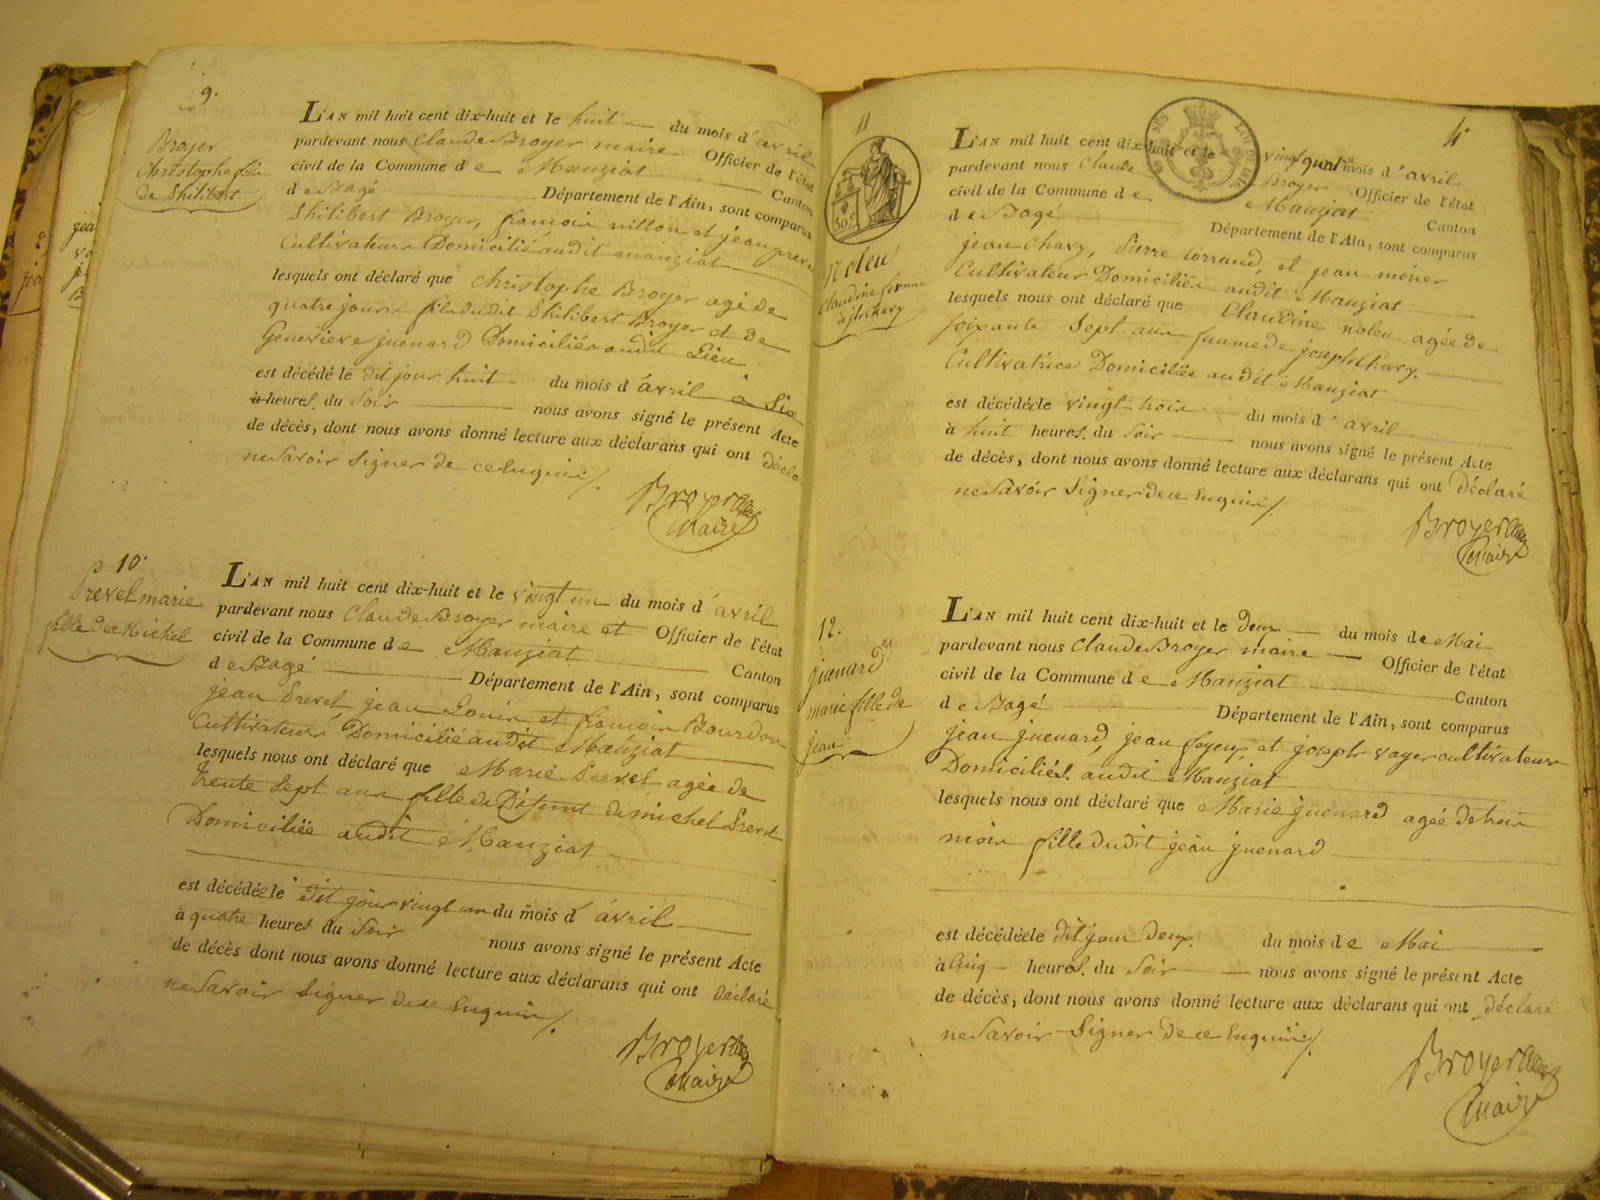 9.
Broyer
Christophe fils
de Philibert
L'AN mil huit cent dix-huit et le huit du mois d'avril
pardevant nous Claude Broyer maire Officier de l'état
civil de la Commune de Manziat Canton
de Bagé Département de l'Ain, sont comparus
Philibert Broyer, françois nitton et jean prevel
Cultivateurs Domicilié audit manziat
lesquels ont déclaré que Christophe Broyer agé de
quatre jours fils dudit Philibert Broyer et de
Geneviève guenard Domiciliés audit Lieu
est décédé le dit jour huit du mois d'avril à Six
à heures du Soir nous avons signé le présent Acte
de décès, dont nous avons donné lecture aux déclarans qui ont décla
ne Savoir Signer de ce Enquis
Broyer
Maire
10.
Prevel marie
fille de Michel
L'AN mil huit cent dix-huit et le vingt un du mois d'avril
pardevant nous Claude Broyer maire et Officier de l'état
civil de la Commune de Manziat Canton
de Bagé Département de l'Ain, sont comparus
jean Prevel jean Louis et françois Bourdon
Cultivateurs Domicilié audit Manziat
lesquels nous ont déclaré que Marie Prevel agée de
trente Sept ans fille de Défunt de michel Prevel
Domiciliée audit Manziat
est décédée le dit jour vingt un du mois d'avril
à quatre heures du Soir nous avons signé le présent Acte
de décès dont nous avons donné lecture aux déclarans qui ont déclaré
ne Savoir Signer de ce Enquis
Broyer
Maire
11
50 c.
noleu
Claudine femme
de jh Chavy
4
L'AN mil huit cent dix-huit et le vingt quatre mois d'avril
pardevant nous Claude Broyer Officier de l'état
civil de la Commune de Manziat Canton
de Bagé Département de l'Ain, sont comparus
jean Chavy, Pierre Corrand, et jean monier
Cultivateur Domiciliés audit Manziat
lesquels nous ont déclaré que Claudine noleu agée de
soixante Sept ans femme de joseph Chavy.
Cultivatrice Domiciliée audit Manziat
est décédée le vingt trois du mois d'avril
à huit heures du Soir nous avons signé le présent Acte
de décès, dont nous avons donné lecture aux déclarans qui ont Déclaré
ne Savoir Signer de ce Enquis
Broyer
Maire
12.
guenard
marie fille de
jean
L'AN mil huit cent dix-huit et le deux du mois de Mai
pardevant nous Claude Broyer maire Officier de l'état
civil de la Commune de Manziat Canton
de Bagé Département de l'Ain, sont comparus
jean guenard, jean feyeux et joseph voyer cultivateurs
Domiciliés audit Manziat
lesquels nous ont déclaré que Marie guenard agée de trois
mois fille dudit jean guenard
est décédée le dit jour deux du mois de Mai
à Cinq heures du Soir nous avons signé le présent Acte
de décès, dont nous avons donné lecture aux déclarans qui ont déclaré
ne Savoir Signer de ce Enquis
Broyer
Maire